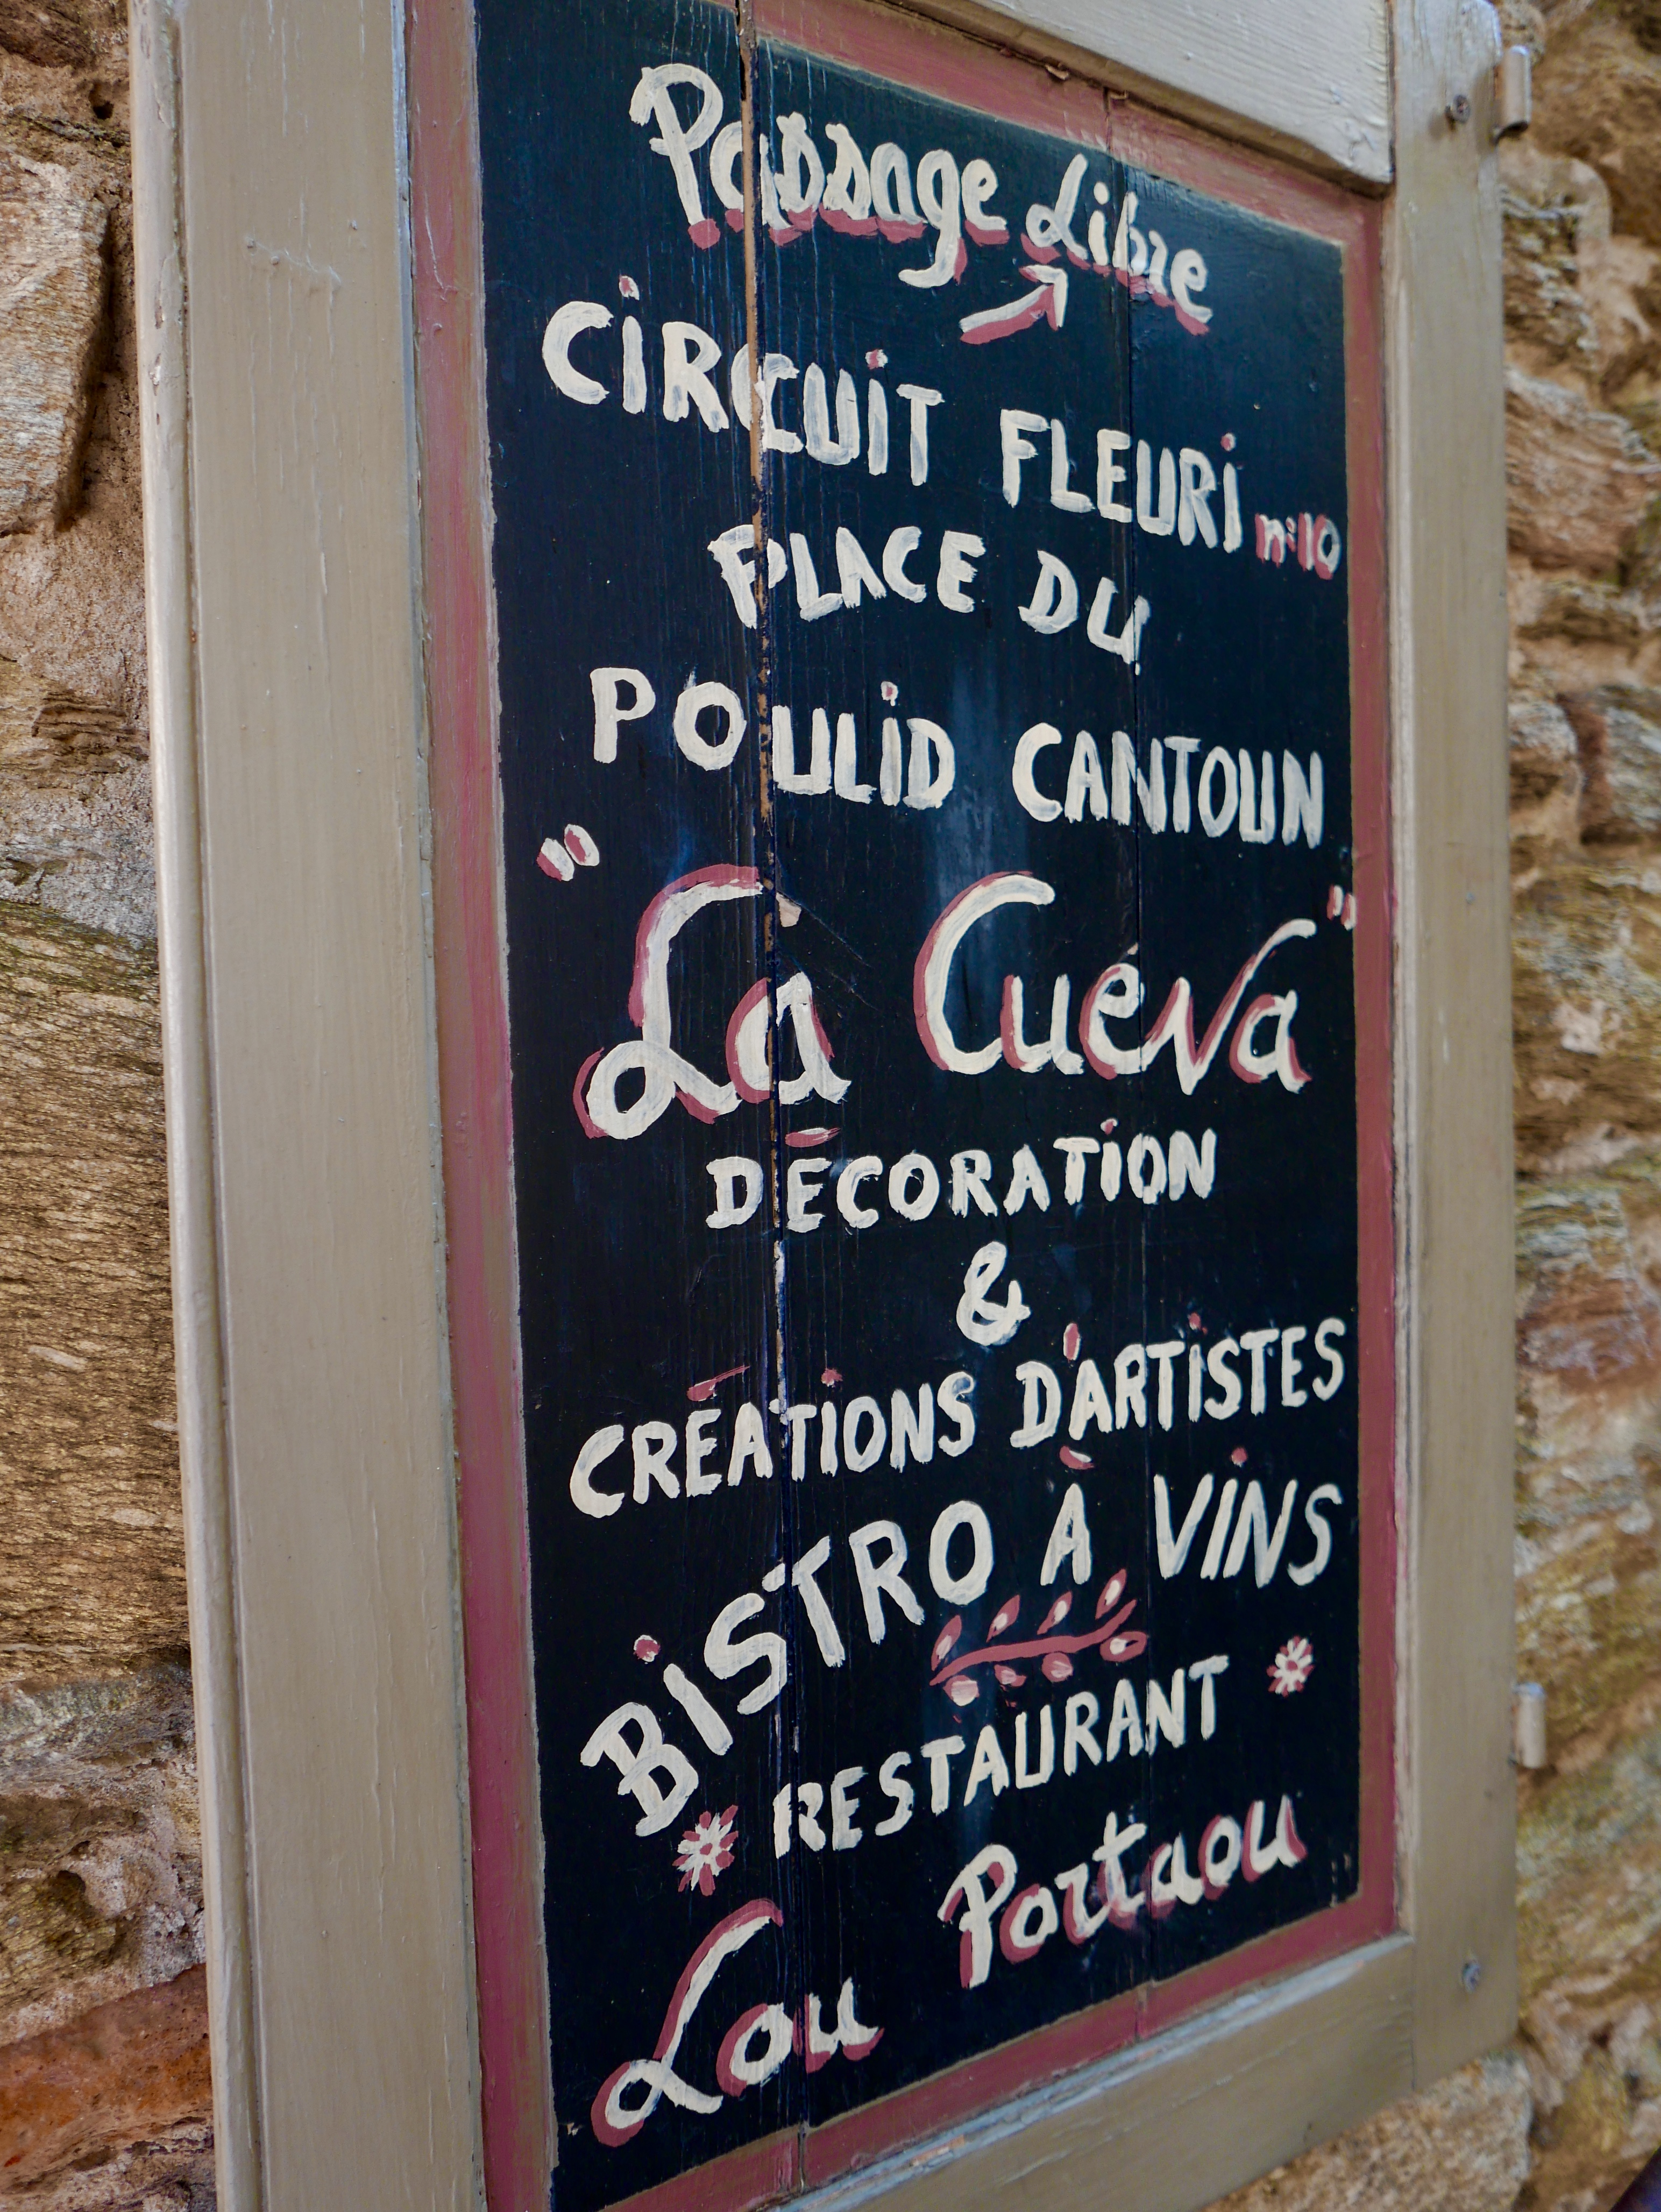 Passage Libre
CiRCUiT FLEURi n°10
PLACE DU
POULiD CANTOUN
"La Cuéva"
DÉCORATiON
&
CRÉATiONS D'ARTiSTES
BiSTRO À ViNS
RESTAURANT
Lou Portaou